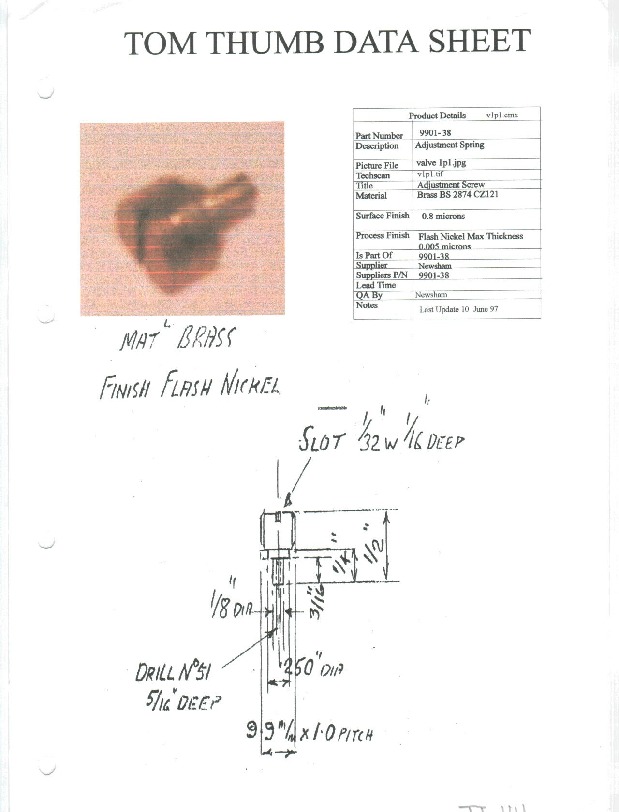 TOM THUMB DATA SHEET
Product Details v1p1.cmx
Part Number 9901-38
Description Adjustment Spring
Picture File valve 1p1.jpg
Techscan v1p1.tif
Title Adjustment Screw
Material Brass BS 2874 CZ121
Surface Finish 0.8 microns
Process Finish Flash Nickel Max Thickness
0.005 microns
Is Part Of 9901-38
Supplier Newsham
Suppliers P/N 9901-38
Lead Time
QA By Newsham
Notes Last Update 10 June 97
MAT'L BRASS
FINISH FLASH NICKEL
SLOT 1/32" W 1/16" DEEP
1/2"
1/4"
3/16"
1/8" DIA
DRILL Nº51
5/16" DEEP
.250" DIA
9.9 m/m x 1.0 PITCH